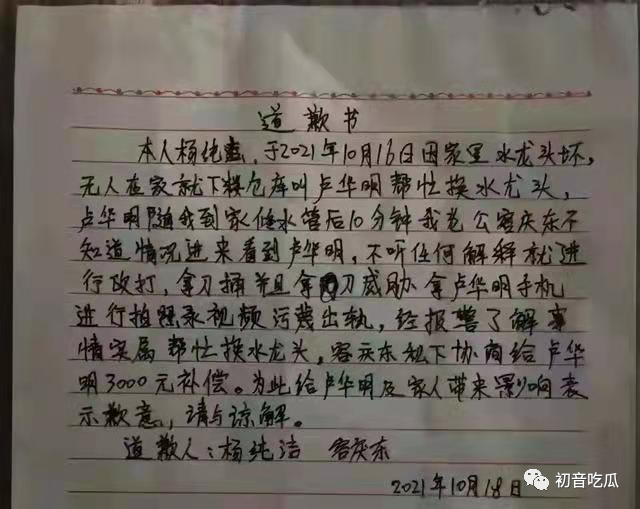 道歉书
本人杨纯洁，于2021年10月16日因家里水龙头坏，
无人在家就下粮仓库叫卢华明帮忙换水龙头，
卢华明随我到家修水管后10分钟我老公容庆东不
知道情况进来看到卢华明，不听任何解释就进
行改打，拿刀捅并且拿刀威胁拿卢华明手机
进行拍照录视频污蔑出轨，经报警了解事
情实属帮忙换水龙头，容庆东私下协商给卢华
明3000元补偿。为此给卢华明及家人带来影响表
示歉意，请与谅解。
道歉人：杨纯洁 容庆东
2021年10月18日
初音吃瓜